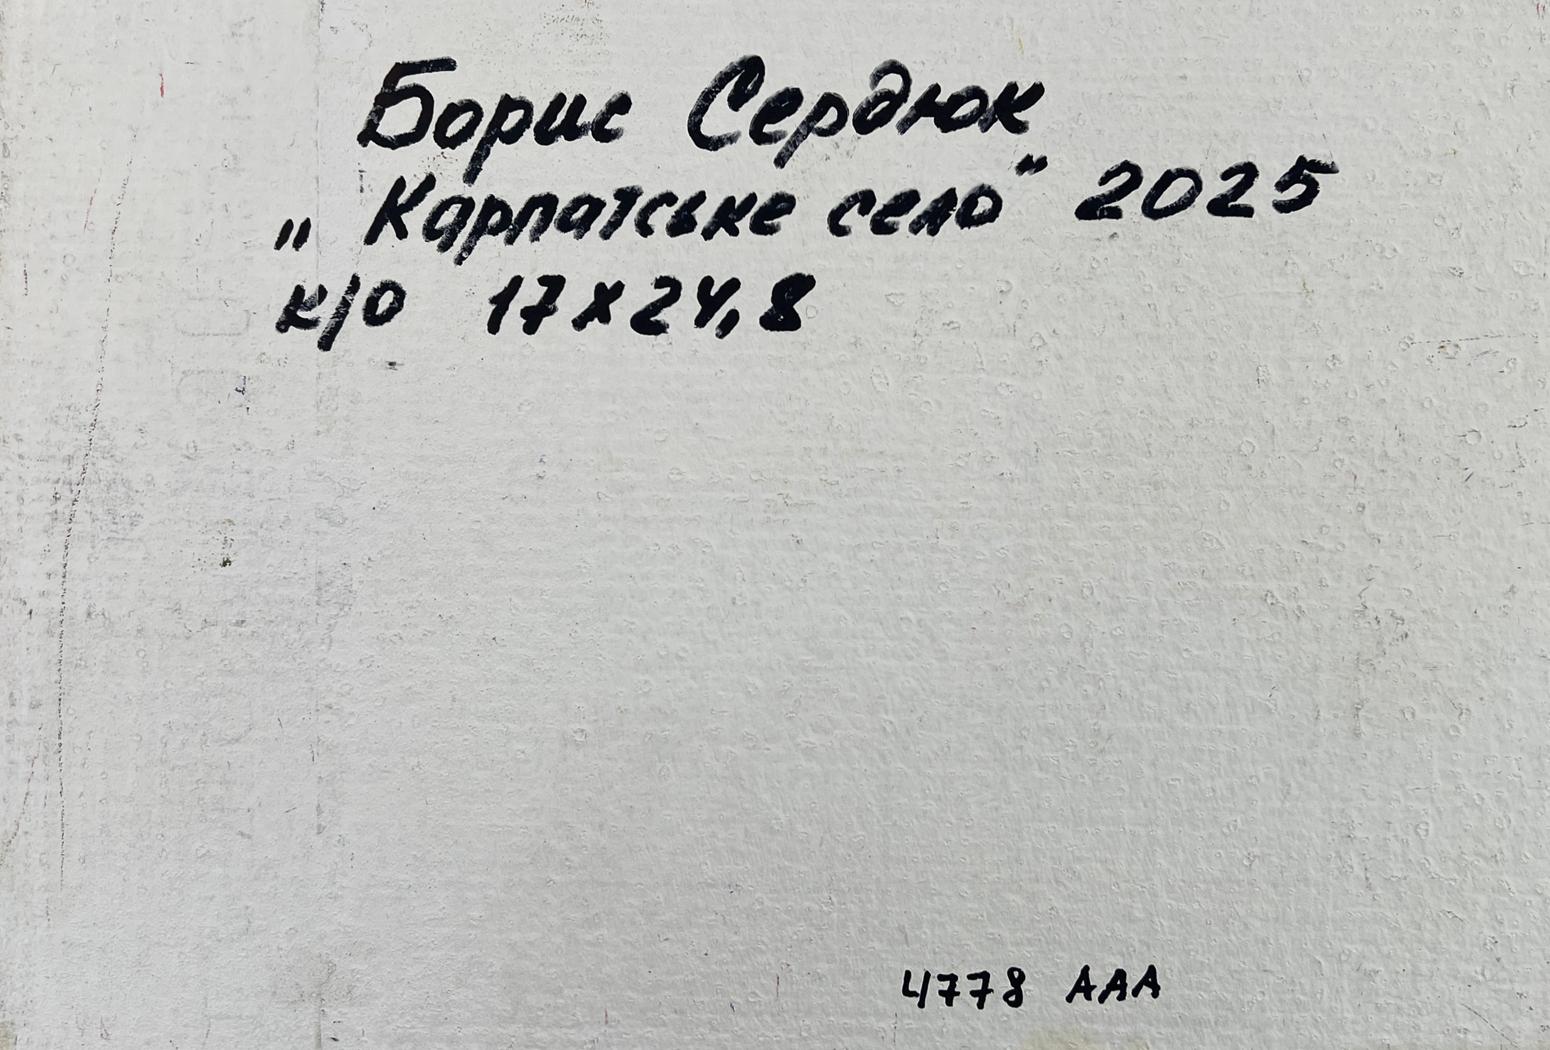 Борис Сердюк
„ Карпатське село" 2025
к/о 17х24,8
4778 ААА